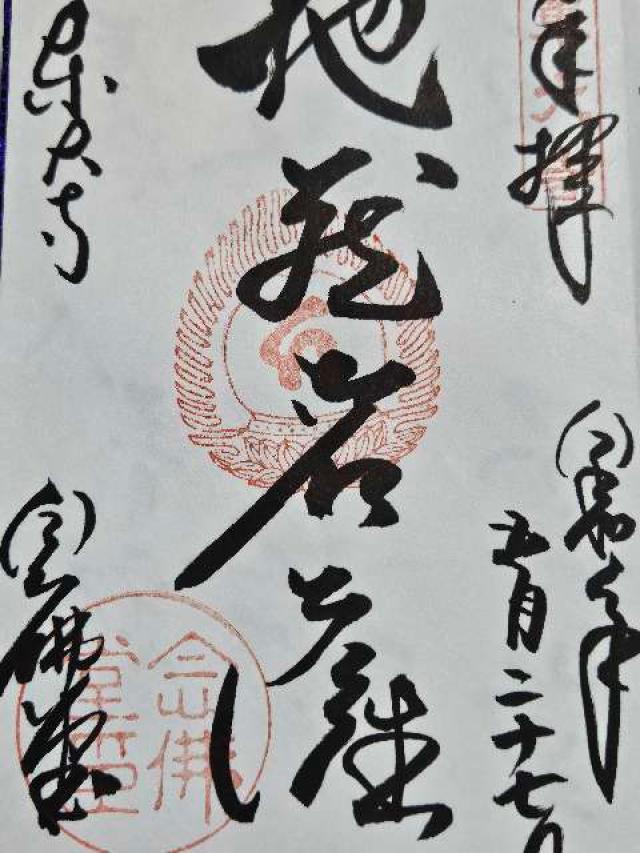 奉拝
令和元年
五月二十七日
地蔵菩薩
東大寺
念佛堂
念佛堂印